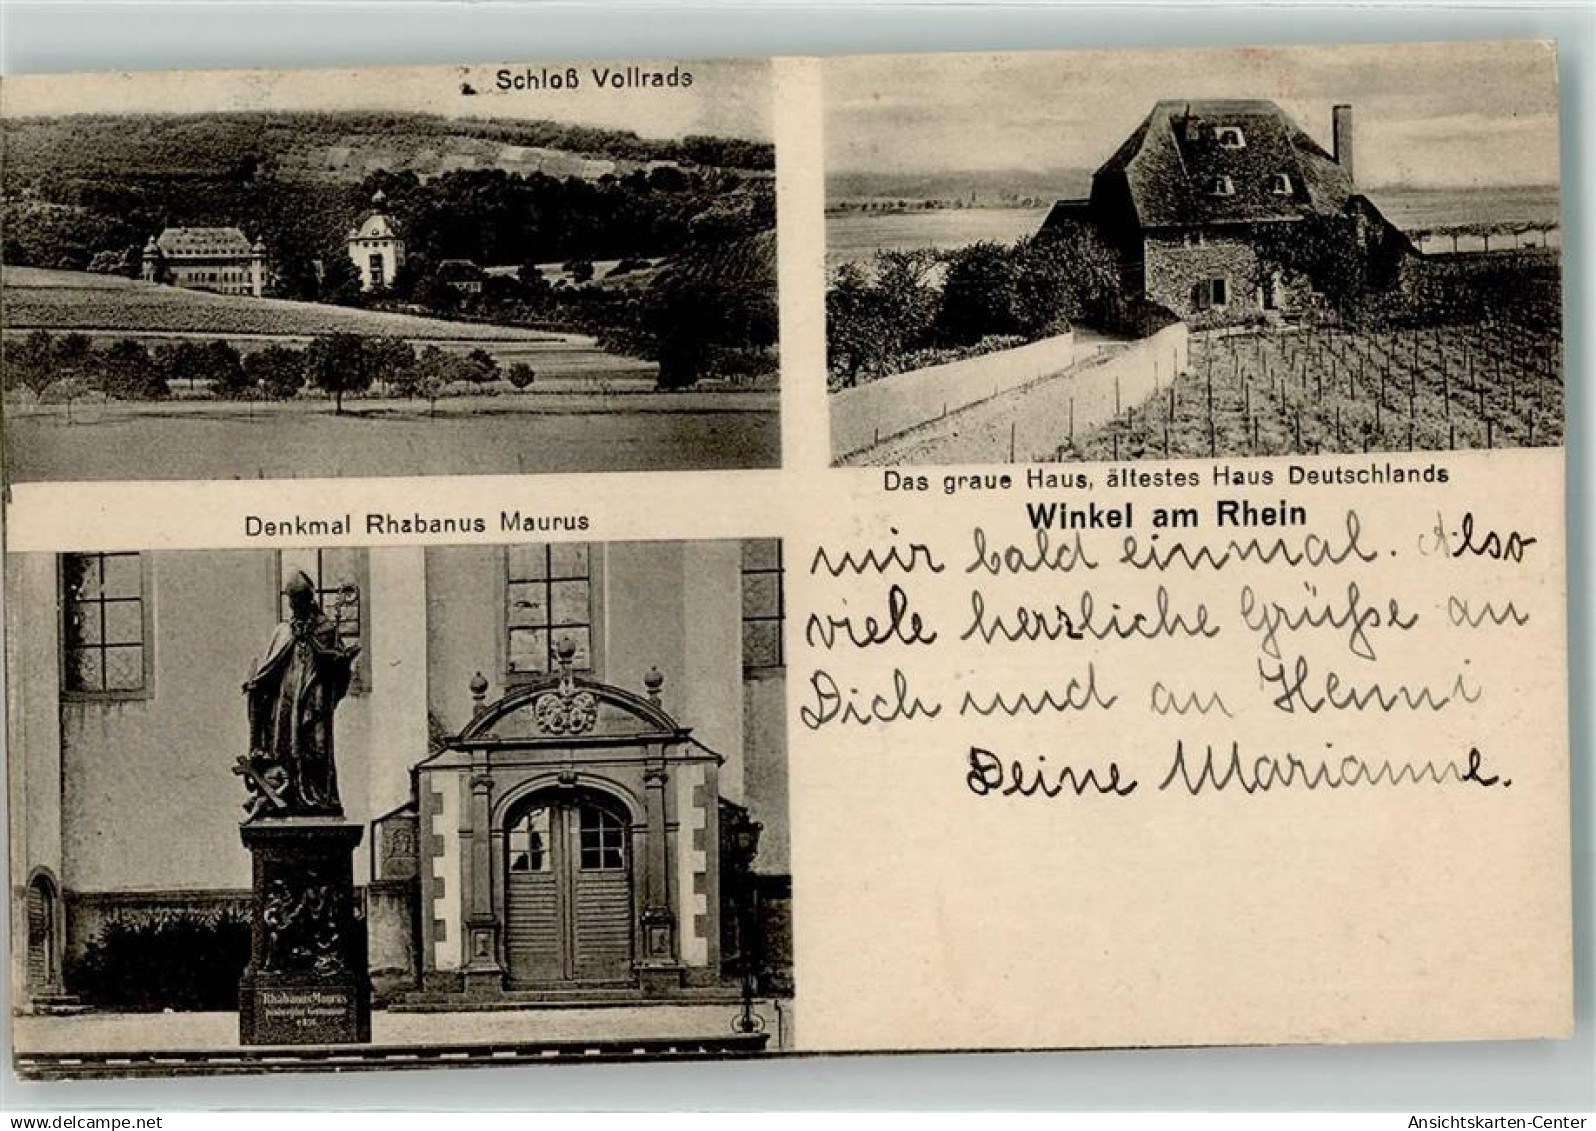 Schloß Vollrads
Das graue Haus, ältestes Haus Deutschlands
Winkel am Rhein
Denkmal Rhabanus Maurus
mir bald einmal. Also
viele herzliche Grüße an
Dich und an Henni
Deine Marianne.
Rhabanus Maurus
oldthing.de
Ansichtskarten-Center